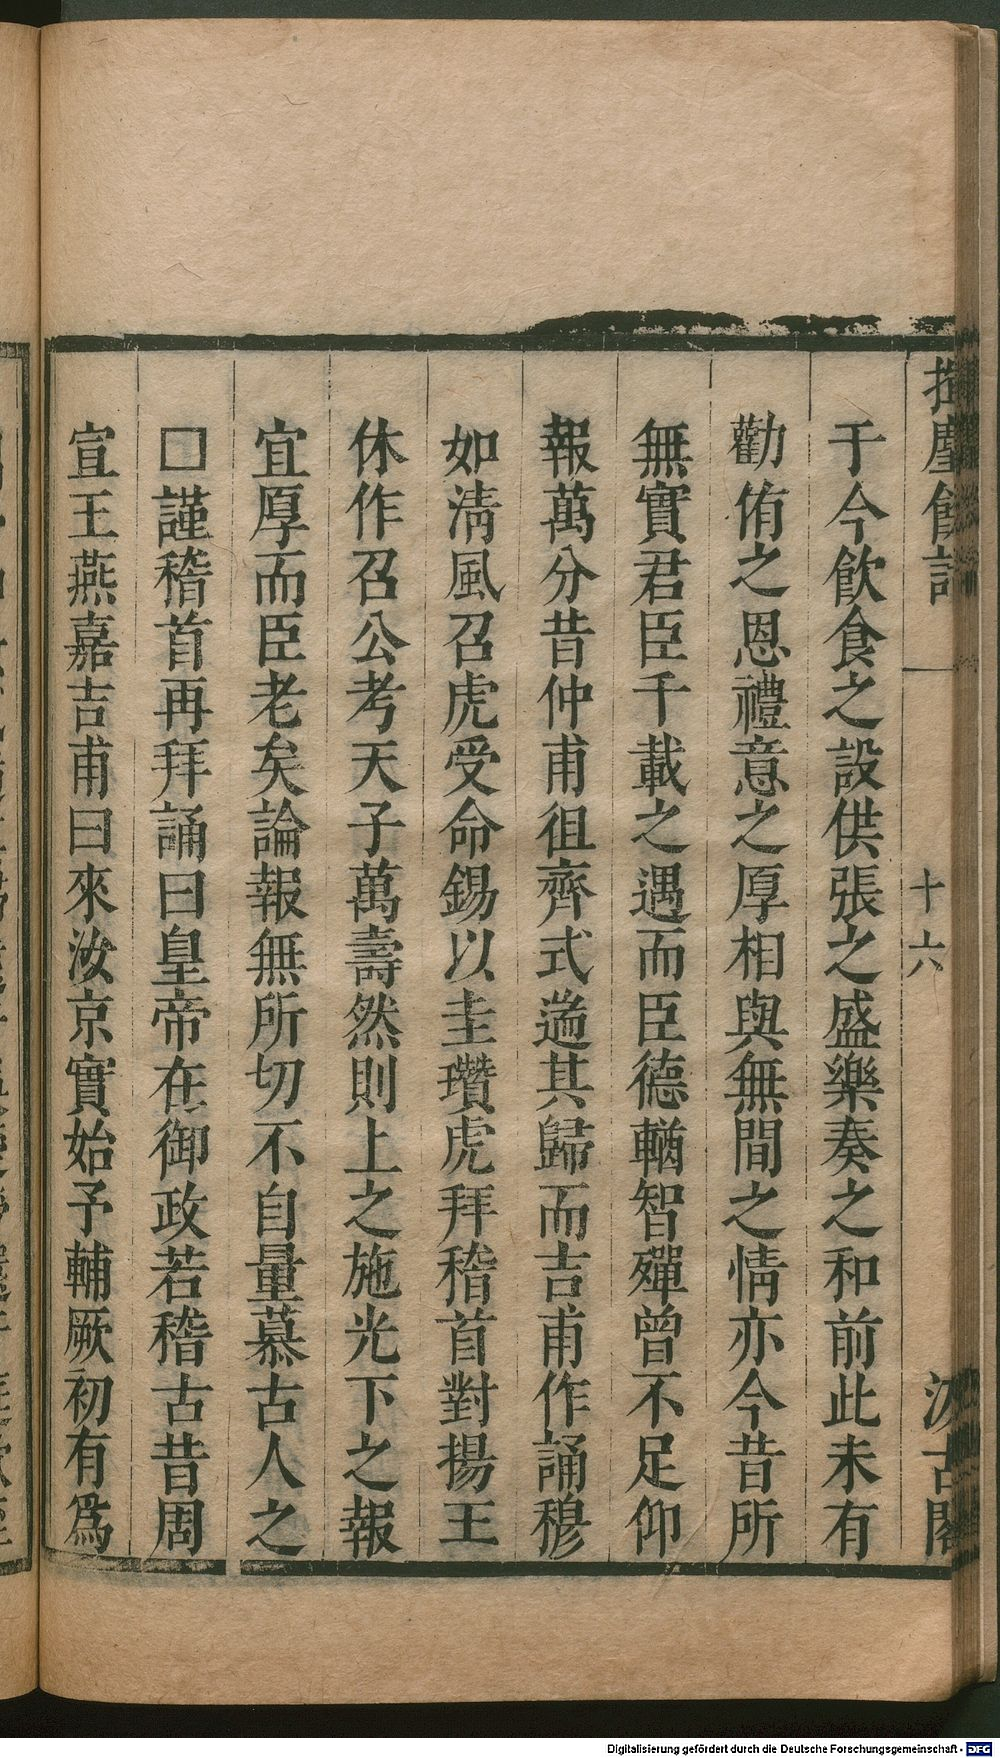 揮麈餘話
十六
汲古閣
于今飲食之設供張之盛樂奏之和前此未有
勸侑之恩禮意之厚相與無間之情亦今昔所
無實君臣千載之遇而臣德輶智殫曾不足仰
報萬分昔仲甫徂齊式遄其歸而吉甫作誦穆
如淸風召虎受命錫以圭瓚虎拜稽首對揚王
休作召公考天子萬壽然則上之施光下之報
宜厚而臣老矣論報無所切不自量慕古人之
□謹稽首再拜誦曰皇帝在御政若稽古昔周
宣王燕嘉吉甫曰來汝京實始予輔厥初有爲
Digitalisierung gefördert durch die Deutsche Forschungsgemeinschaft - DFG